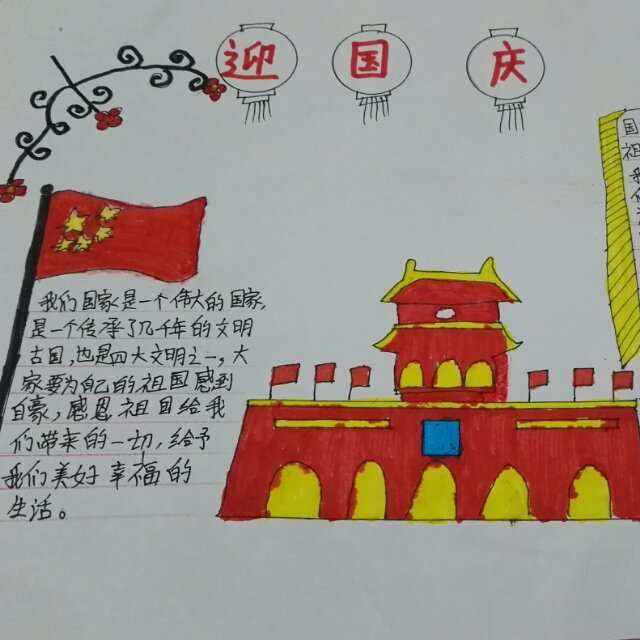 迎国庆
我们国家是一个伟大的国家,
是一个传承了几千年的文明
古国,也是四大文明之一,大
家要为自己的祖国感到
自豪,感恩祖国给我
们带来的一切,给予
我们美好幸福的
生活。
国
祖
我